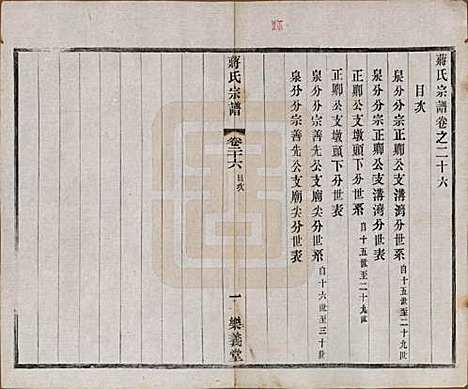 蔣氏宗譜卷之二十六
目次
泉分分宗正卿公支溝灣分世系自十五世至二十九世
泉分分宗正卿公支溝灣分世表
正卿公支墩頭下分世系自十五世至二十九世
正卿公支墩頭下分世表
泉分分宗善先公支廟尖分世系自十六世至三十世
泉分分宗善先公支廟尖分世表
蔣氏宗譜
卷二十六
目次
一
樂義堂